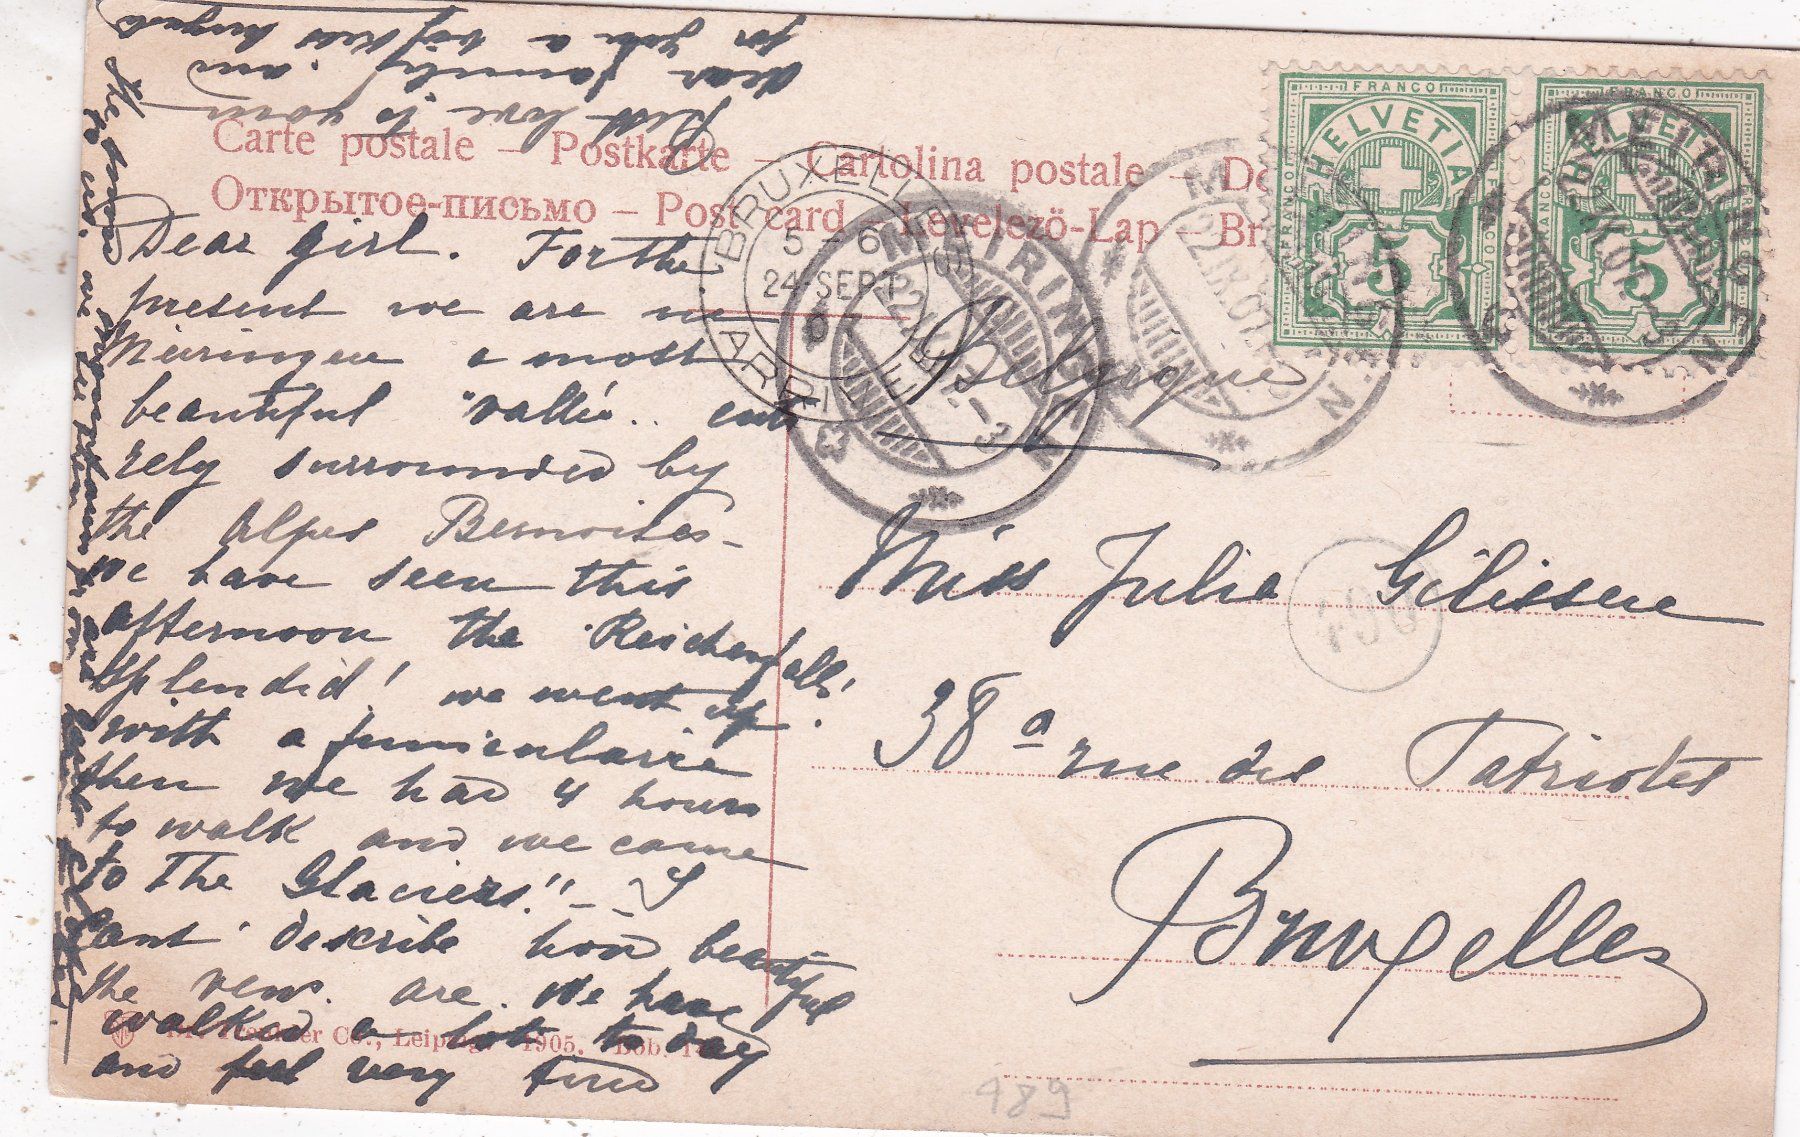 Carte postale – Postkarte – Cartolina postale –
Открытое-письмо – Post card – Levelezö-Lap –
FRANCO
HELVETIA
5
FRANCO
HELVETIA
5
BRUXELLES
5 – 6
24 SEPT
ARRIVEE
MEIRINGEN
MEIRINGEN
MEIRINGEN
Dear girl. For the
present we are in
Meiringen a most
beautiful "vallée.. enti
rely surrounded by
the Alpes Bernoises –
we have seen this
afternoon the Reichenfall!
Splendid! we went up
with a funiculaire
then we had 4 hours
to walk and we came
to the Glaciers!! – I
cant describe how beautiful
the view are. We have
walked a lot to day
and feel very tired
Best love to your
dear family and
for you a big kiss
Belgique
Miss Julia Gilissen
38 a rue des Patriotes
Bruxelles
Co., Leipzig. 1905.
490
489